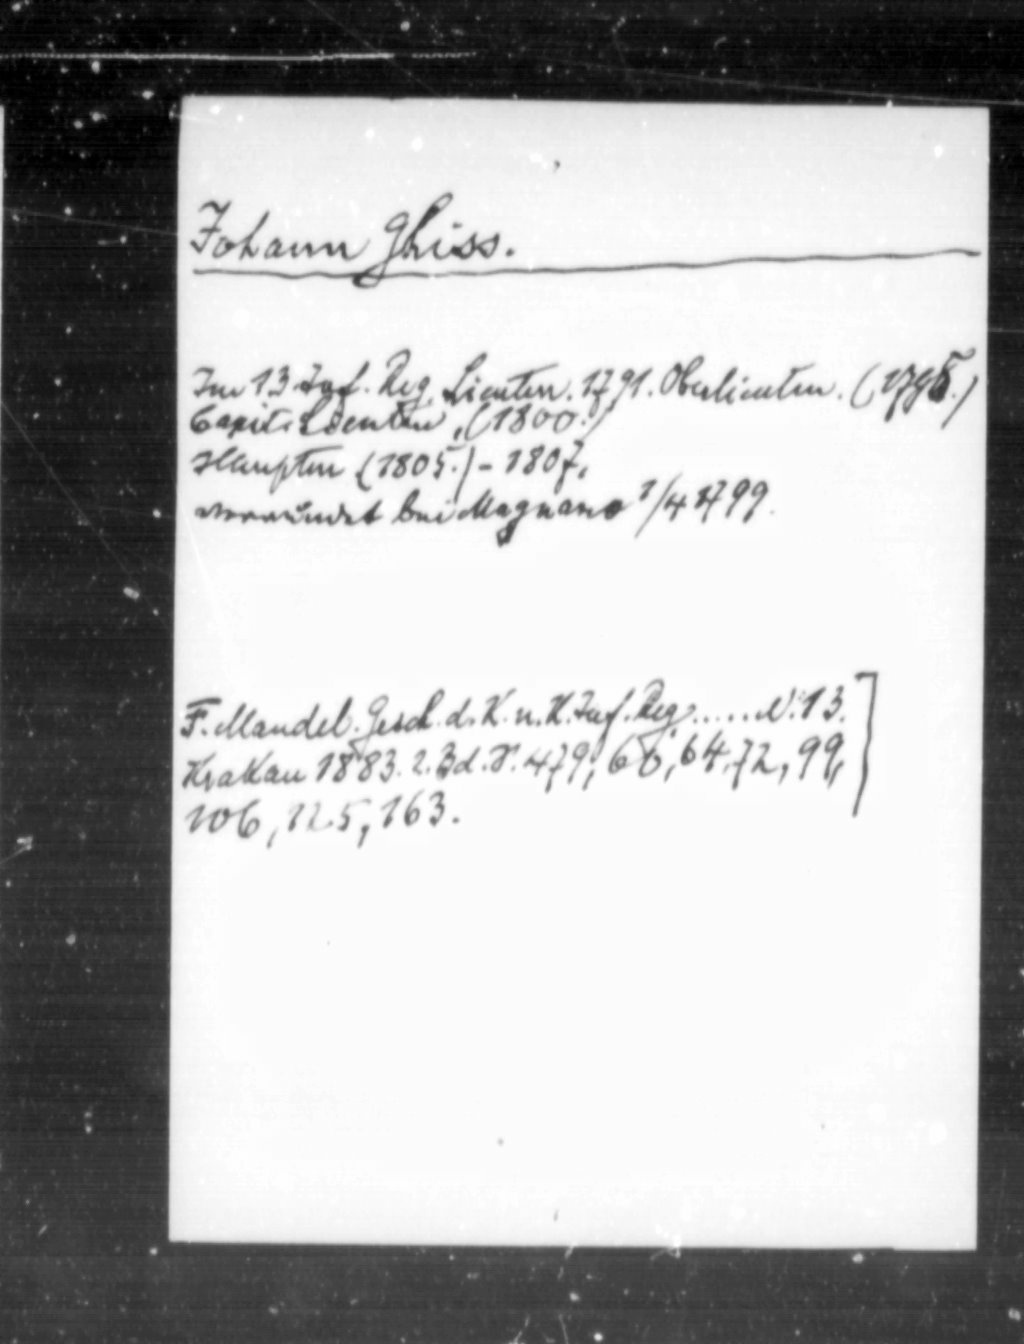 Johann Ghiss.
Im 13 Inf. Reg. Lieuten. 1791. Oberlieuten. (1795.)
Capit. Lieuten. (1800.)
Hauptm (1805.) - 1807.
verwundet bei Magnano 1/4 1799.
F. Mandel. Gesch. d. K. u. K. Inf. Reg. .... N. 13.
Krakau 1883. 2. Bd. S. 479, 60, 64, 72, 99,
106, 125, 163.